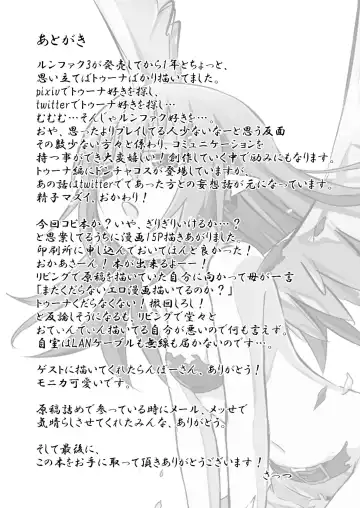 あとがき
ルンファク3が発売してから1年とちょっと、
思い立てばトゥーナばかり描いてました。
pixivでトゥーナ好きを探し、
twitterでトゥーナ好きを探し…
むむむ…そんじゃルンファク好きを…。
おや、思ったよりプレイしてる人少ないなーと思う反面
その数少ない方々と係わり、コミュニケーションを
持つ事ができ大変嬉しい！創作していく中で励みにもなります。
トゥーナ編にドンチャコスが登場していますが、
あの話はtwitterででてあった方との妄想話が元になっています。
精子マズイ、おかわり！
今回コピ本か？いや、ぎりぎりいけるか…？
と思案してるうちに漫画15P描きあがりました。
印刷所に申し込んでおいてほんと良かった！
おかあさーん！本が出来るよーー！
リビングで原稿を描いていた自分に向かって母が一言
「またくだらないエロ漫画描いてるのか？」
トゥーナくだらなくない！撤回しろし！
と反論しそうになるも、リビングで堂々と
おてぃんてぃん描いてる自分が悪いので何も言えず。
自室はLANケーブルも無線も届かないのです…。
ゲストに描いてくれたらんぼーさん、ありがとう！
モニカ可愛いです。
原稿詰めで参っている時にメール、メッセで
気晴らしさせてくれたみんな、ありがとう。
そして最後に、
この本をお手に取って頂きありがとうございます！
さっつ